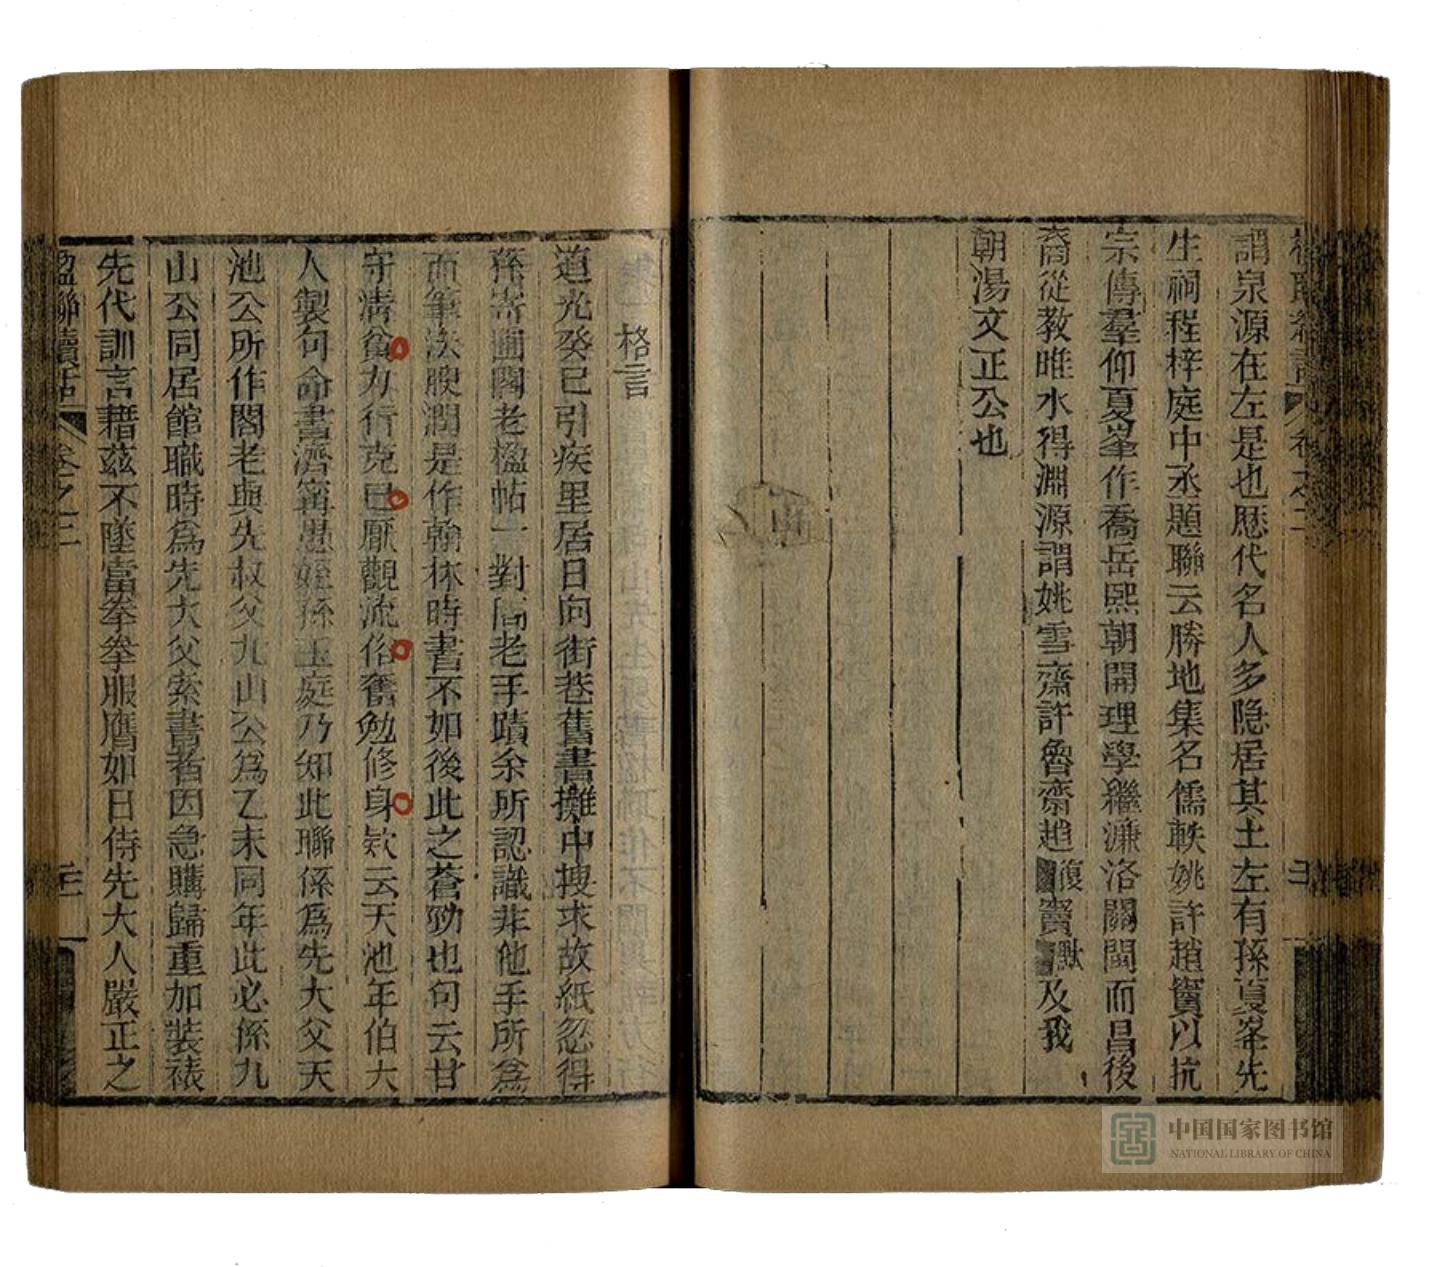 謂泉源在左是也歷代名人多隐居其土左有孫夏峯先
生祠程梓庭中丞題聯云勝地集名儒軼姚許趙竇以抗
宗傳羣仰夏峯作喬岳熙朝開理學繼濂洛關閩而昌後
裔從教唯水得淵源謂姚雪齋許魯齋趙復竇默及我
朝湯文正公也
格言
道光癸巳引疾里居日向街巷舊書攤中搜求故紙忽得
蔡寄圃閣老楹帖一對閣老手蹟余所認識非他手所爲
而筆法腴潤是作翰林時書不如後此之蒼勁也句云甘
守淸貧力行克已厭觀流俗奮勉修身欵云天池年伯大
人製句命書濟甯愚姪孫玉庭乃知此聯係爲先大父天
池公所作閣老與先叔父九山公爲乙未同年此必係九
山公同居館職時爲先大父索書者因急購歸重加裝裱
先代訓言藉兹不墜當拳拳服膺如日侍先大人嚴正之
楹聯續話 卷之二 三
中国国家图书馆
NATIONAL LIBRARY OF CHINA